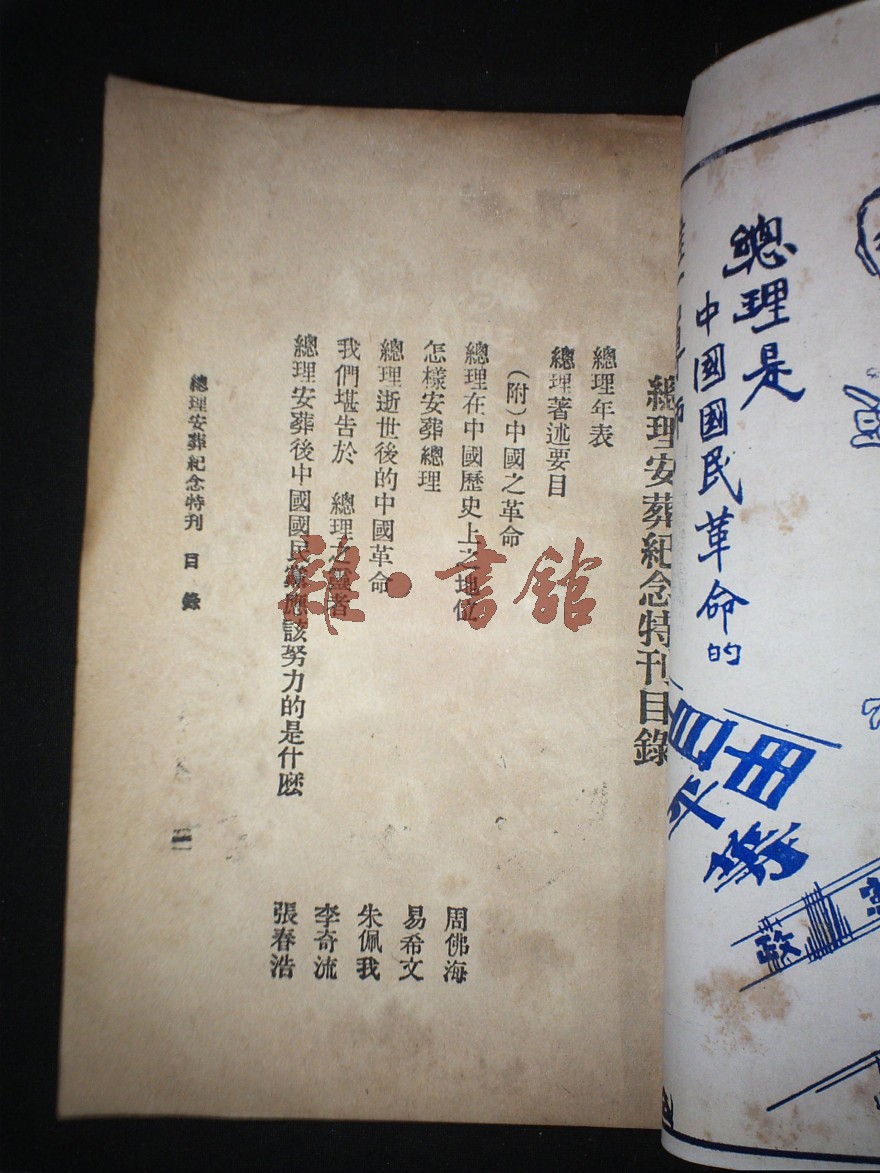 總理是
中國國民革命的
憲
政
總理安葬紀念特刊目錄
總理年表
總理著述要目
（附）中國之革命
總理在中國歷史上之地位
周佛海
怎樣安葬總理
易希文
總理逝世後的中國革命
朱佩我
我們堪告於 總理之靈者
李奇流
總理安葬後中國國民黨應該努力的是什麽
張春浩
總理安葬紀念特刊 目錄
雜·書館